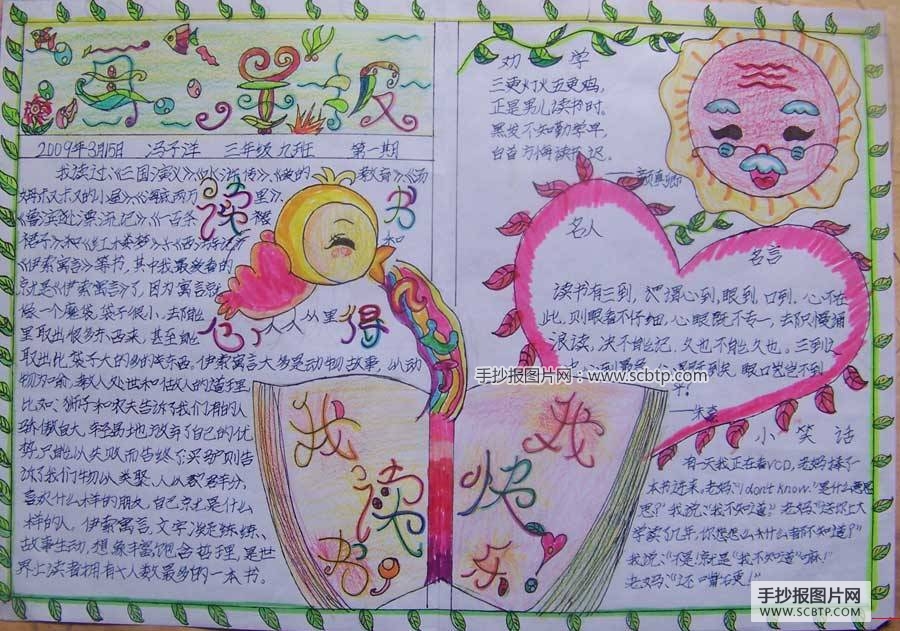 手抄报
2009年3月15日 冯子洋 三年级九班 第一期
读书
心得
我读过《三国演义》《水浒传》《爱的教育》《汤
姆叔叔的小屋》《海底两万里》、
《鲁滨逊漂流记》《一百条裙
裙子》和《红木娄梦》《西游记》
《伊索寓言》等书，其中我最爱看的
就是《伊索寓言》了，因为寓言就
像一个魔袋，袋子很小，却能从里
里取出很多东西来，甚至能
取出比袋子大的多的东西。伊索寓言大多是动物故事，以动
物为喻，教人处世和做人的道理
比如：狮子和农夫告诉了我们有的人
骄傲自大，轻易地放弃了自己的优
势，只能以失败而告终了。买驴则告
诉了我们物以类聚，人以群分，
喜欢什么样的朋友，自己就是什么
样的人。伊索寓言，文字凝炼，
故事生动，想象丰富，饱含哲理，是世
界上读者拥有人数最多的一本书。
我读书
我快乐
劝学
三更灯火五更鸡，
正是男儿读书时。
黑发不知勤学早，
白首方悔读书迟。
——颜真卿
名人
名言
读书有三到，谓心到，眼到，口到。心不在
此，则眼看不仔细，心眼既不专一，去只慢诵
浪读，决不能记，久也不能久也。三到之
——朱熹
小笑话
有一天我正在看VCD，老妈捧了一
本书进来，老妈：“I don't know.”是什么意思
思？”我说：“我不知道。”老妈：“送你上大
学读了几年，你怎么什么都不知道？”
我说：“不是！就是‘我不知道’嘛！”
老妈：“还嘴硬！”
手抄报图片网：www.scbtp.com
手抄报图片网
WWW.SCBTP.COM